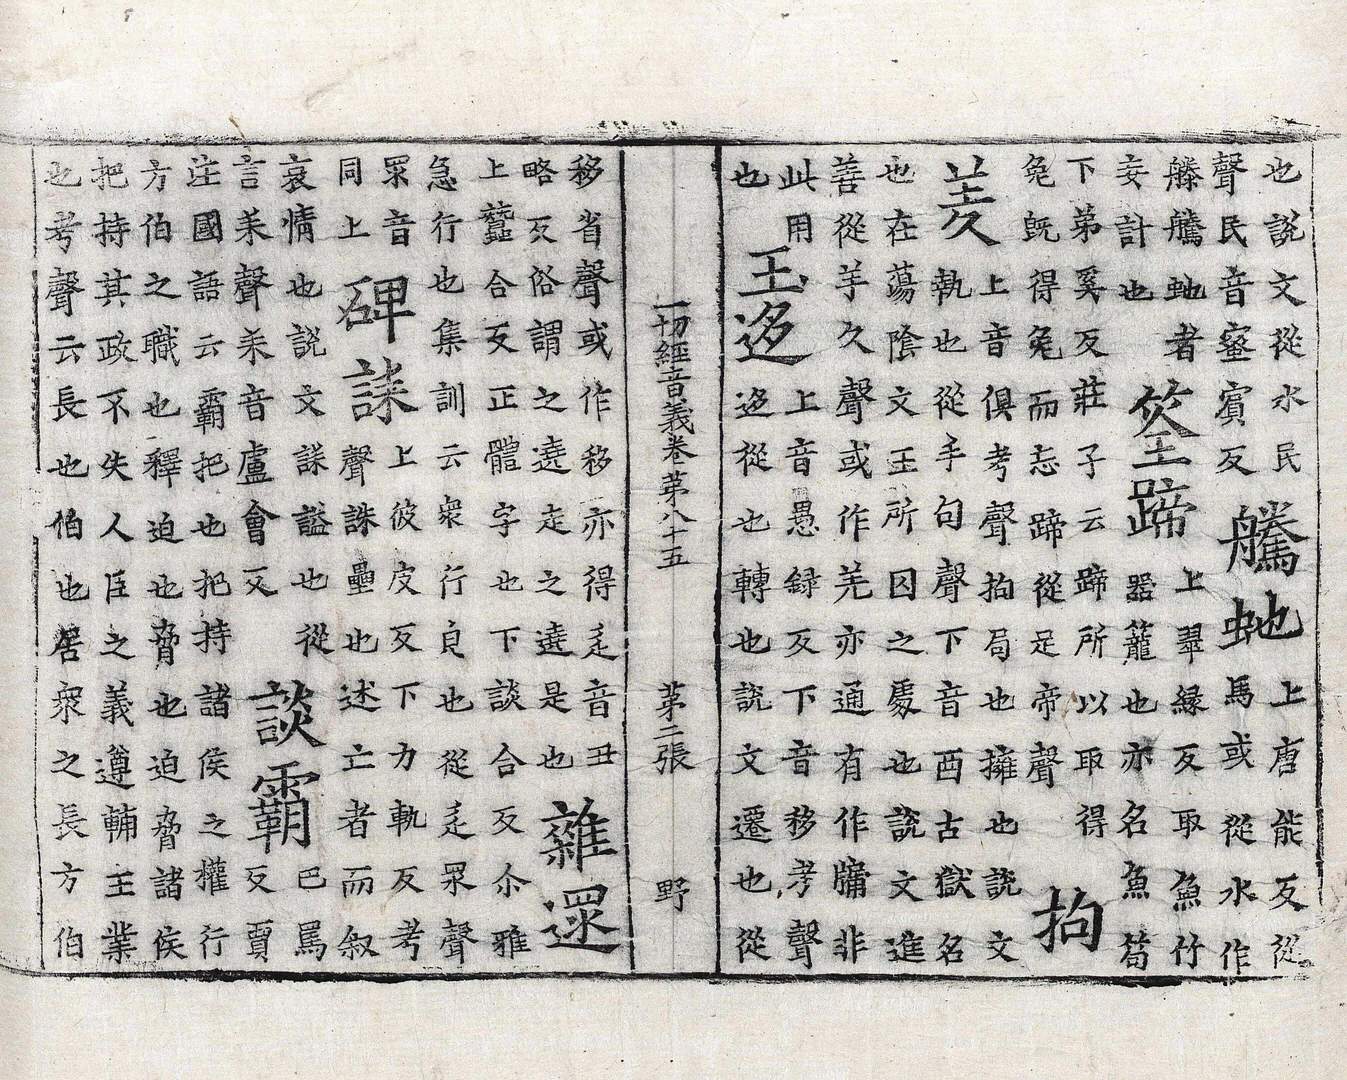 也說文從水民上唐能反從
聲民音蜜賔反騰蚍馬或從水作
滕騰虵者上翠緣反取魚竹
妄計也筌蹄器籠也亦名魚笱
下弟奚反莊子云蹄所以取得
兔旣得兔而忘蹄從足帝聲拘
羑上音俱考聲拘局也擁也說文
執也從手句聲下音酉古獄名
也在蕩陰文王所囚之處也說文進
善從羊久聲或作羌亦通有作牖非
此用王迻上音愚録反下音移考聲
也迻從也轉也說文遷也從
一切經音義卷第八十五 第二張 野
移省聲或作移亦得辵音丑
略反俗謂之遶走之遶是也雜遝
上蠶合反正體字也下談合反尒雅
急行也集訓云衆行皃也從辵眔聲
眔音上彼皮反下力軌反考
同上碑誄聲誄壘也述亡者而叙
哀情也說文誄謚也從
言耒聲耒音盧會反談霸巴罵反賈
注國語云霸把也把持諸侯之權行
方伯之職也釋迫也脅也迫脅諸侯
把持其政不失人臣之義遵輔王業
也考聲云長也伯也居衆之長方伯